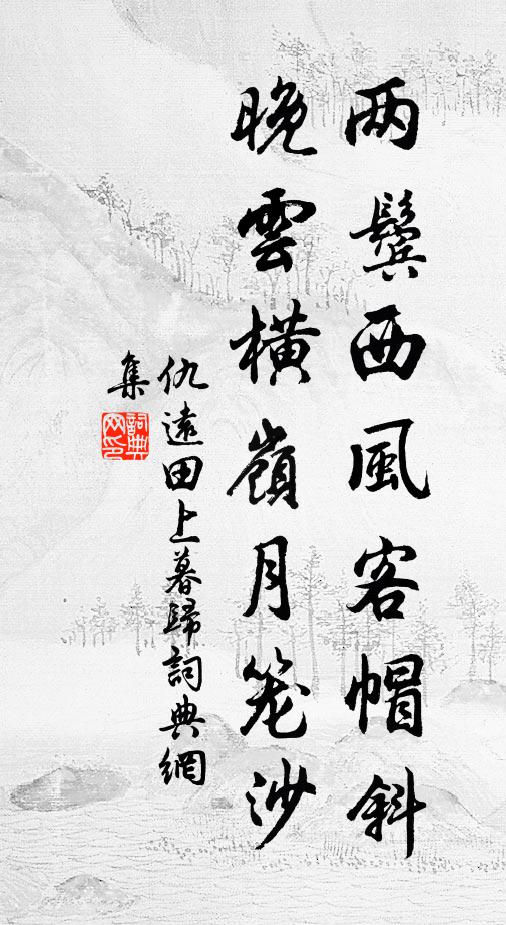 两鬓西風客帽斜
晚雲橫嶺月笼沙
仇遠田上暮歸詞典網
集
詞典
网印